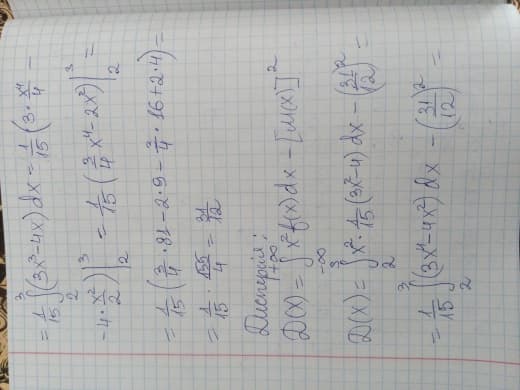 = 1/15 ∫₂³ (3x³-4x) dx = 1/15 (3 · x⁴/4 -
- 4 · x²/2) |₂³ = 1/15 (3/4 x⁴ - 2x²) |₂³ =
= 1/15 (3/4 · 81 - 2 · 9 - 3/4 · 16 + 2 · 4) =
= 1/15 · 155/4 = 31/12
Дисперсія:
D(X) = ∫₋∞⁺∞ x² f(x) dx - [M(X)]²
D(X) = ∫₂³ x² · 1/15 (3x²-4) dx - (31/12)² =
= 1/15 ∫₂³ (3x⁴-4x²) dx - (31/12)² =